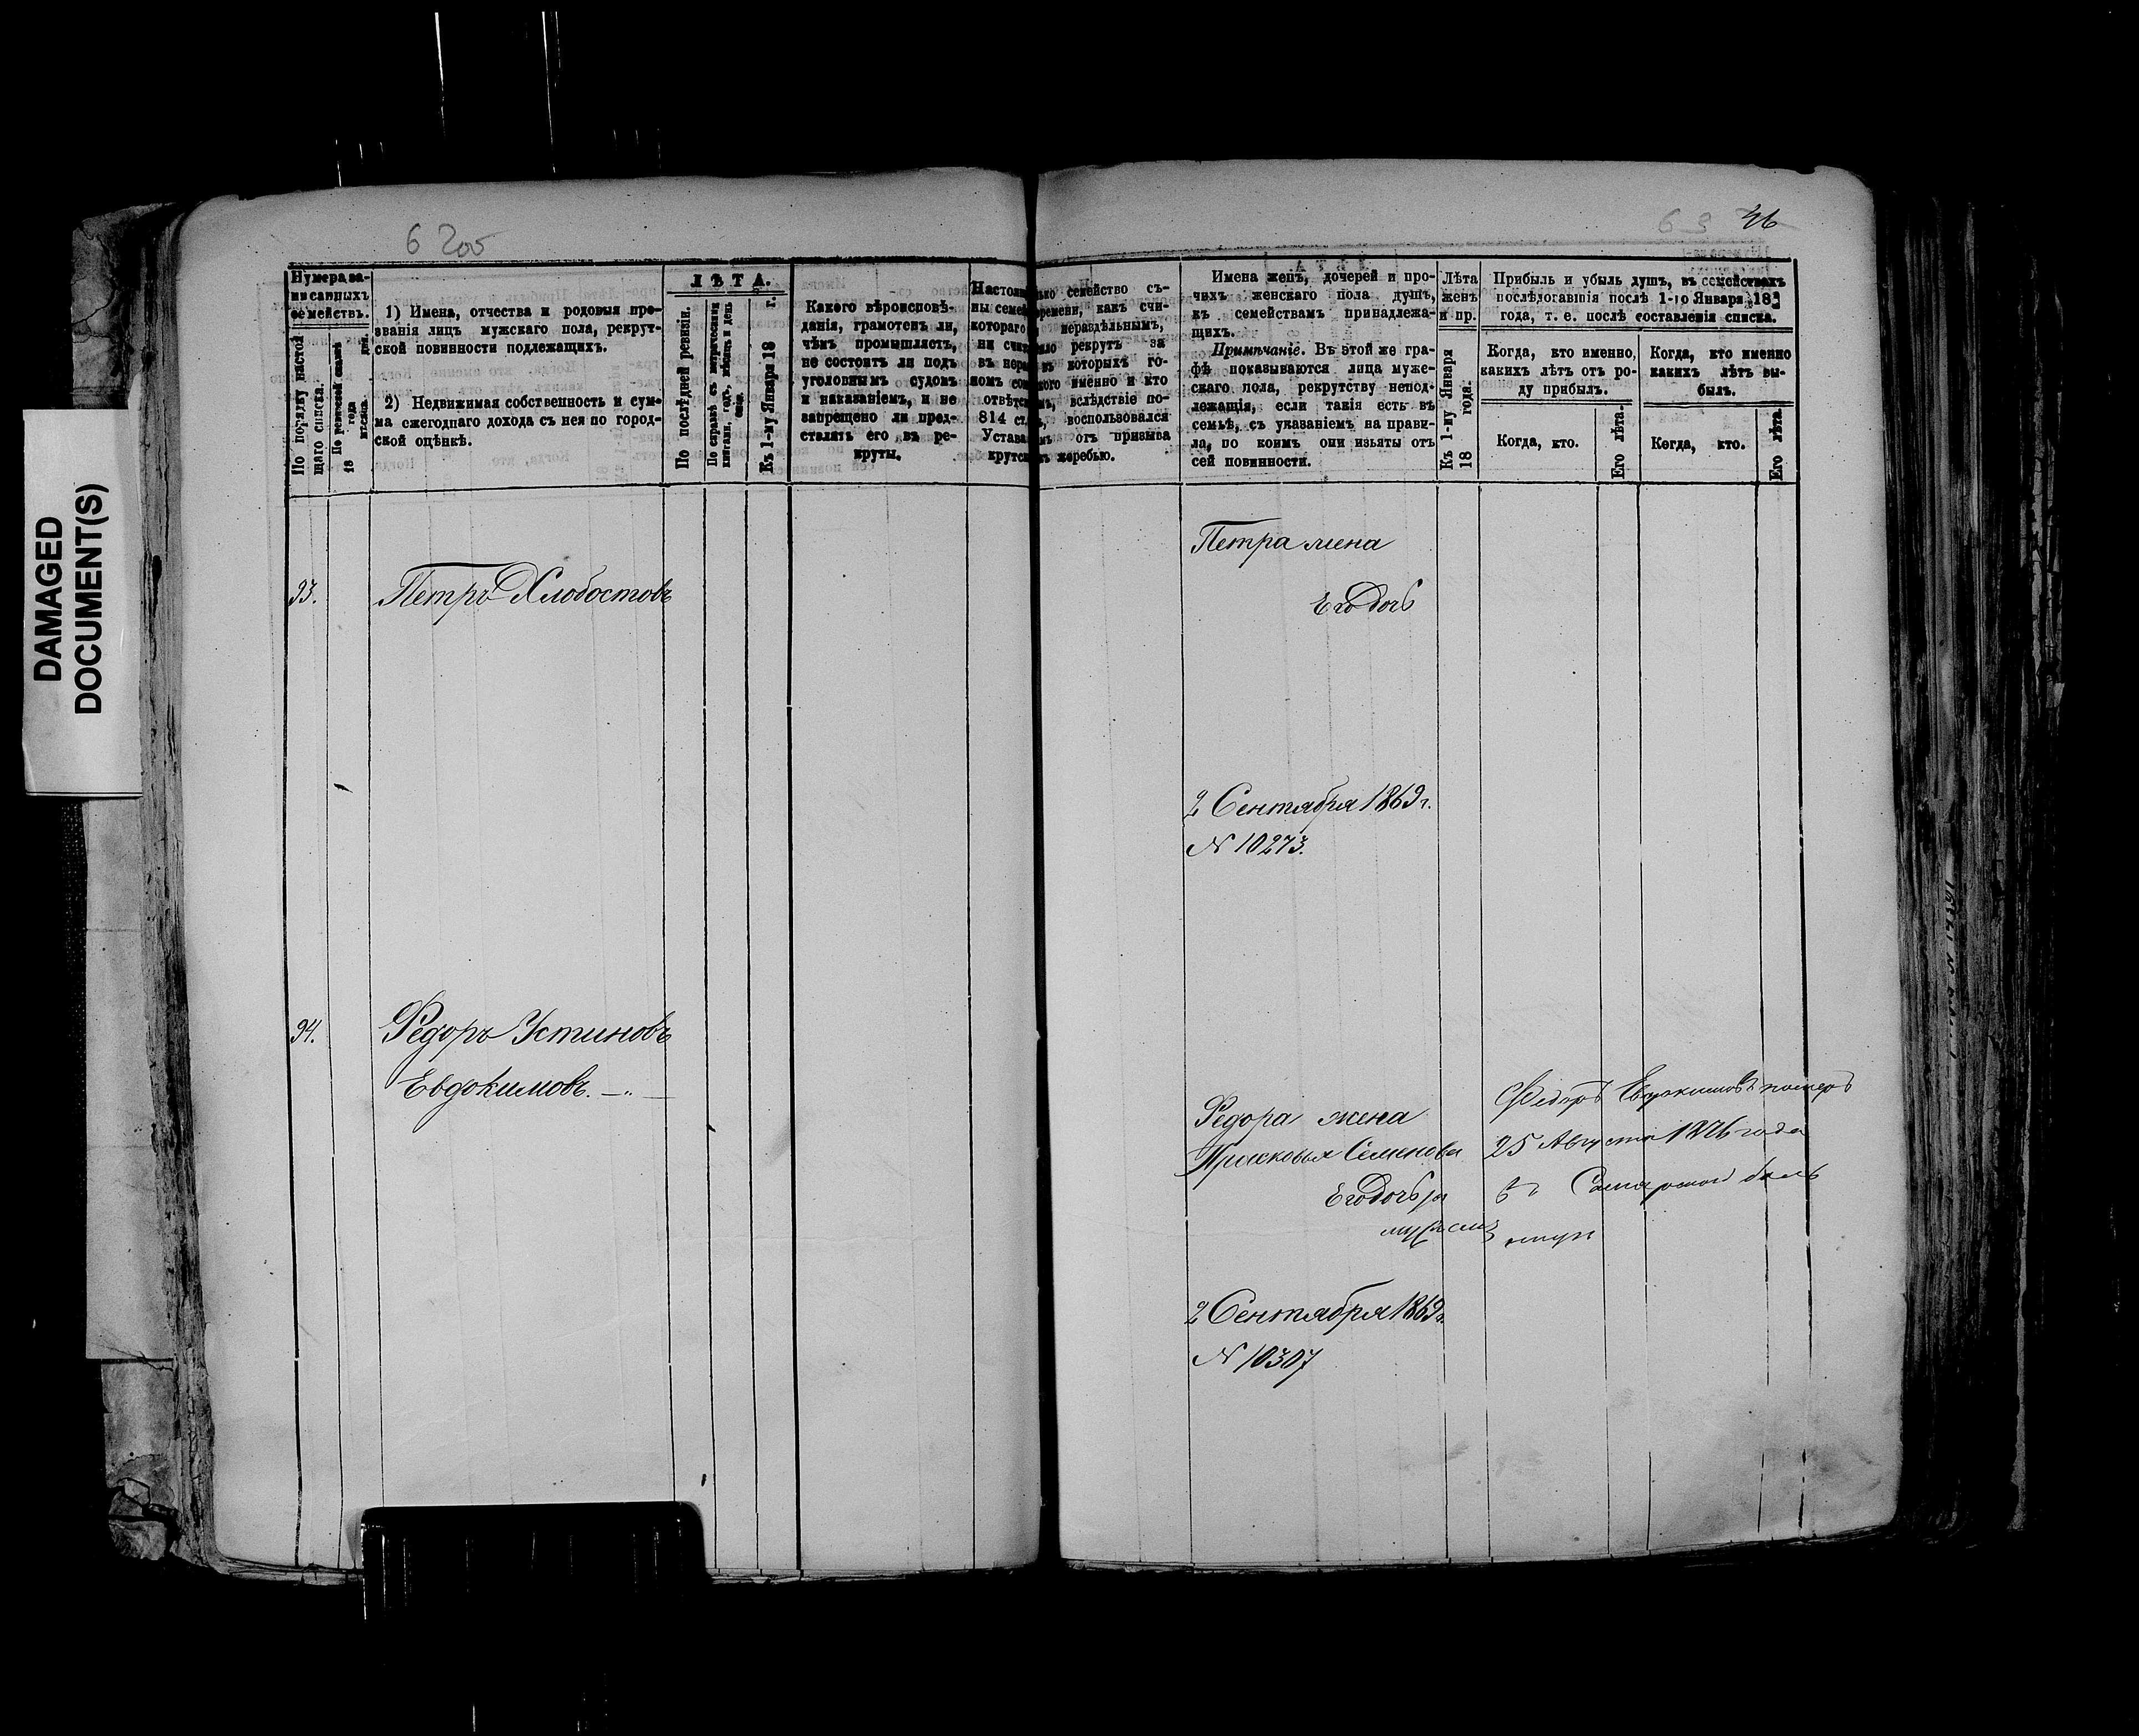 DAMAGED
DOCUMENT(S)
6 об
46
Нумера за-
писанныхъ
семействъ.
По порядку настоя
щаго списка.
По ревизской сказкѣ
18 года
мѣсяца дня.
1) Имена, отчества и родовыя про-
званія лицъ мужскаго пола, рекрут-
ской повинности подлежащихъ.
2) Недвижимая собственность и сум-
ма ежегоднаго дохода съ нея по город-
ской оцѣнкѣ.
ЛѢТА.
По послѣдней ревизіи.
По справкѣ съ метрическими
книгами, годъ, мѣсяцъ и день
Къ 1-му Января 18 г.
Какого вѣроисповѣ-
данія, грамотенъ ли,
чѣмъ промышляетъ,
не состоитъ ли подъ
уголовнымъ судомъ
и наказаніемъ, и не
запрещено ли пред-
ставлять его въ ре-
круты.
семейство съ
времени, какъ счи-
котораго нераздѣльнымъ,
рекрутъ за
которыхъ го-
именно и кто
вслѣдствіе по-
814 ст. воспользовался
Устава отъ призыва
жеребью.
Имена женъ, дочерей и про-
чихъ женскаго пола душъ,
къ семействамъ принадлежа-
щихъ.
Примѣчаніе. Въ этой же гра-
фѣ показываются лица муже-
скаго пола, рекрутству непод-
лежащія, если такія есть въ
семьѣ, съ указаніемъ на прави-
ла, по коимъ они изъяты отъ
сей повинности.
Лѣта
женъ
и пр.
Къ 1-му Января
18 года.
Прибыль и убыль душъ, въ семействахъ
послѣдовавшія послѣ 1-го Января 18
года, т. е. послѣ составленія списка.
Когда, кто именно,
какихъ лѣтъ отъ ро-
ду прибылъ.
Когда, кто именно
какихъ лѣтъ вы-
былъ.
Когда, кто.
Его лѣта.
Когда, кто.
Его лѣта.
93.
Петръ Хлобостовъ
Петра жена
Его дочь
2 Сентября 1869 г.
№ 10273.
94.
Федоръ Устиновъ
Евдокимовъ. —„—
Федора жена
Прасковья Семенова
Его дочь
2 Сентября 1869 г.
№ 10307
Федоръ Евдокимовъ померъ
25 Августа 1876 года
въ Самарской боль